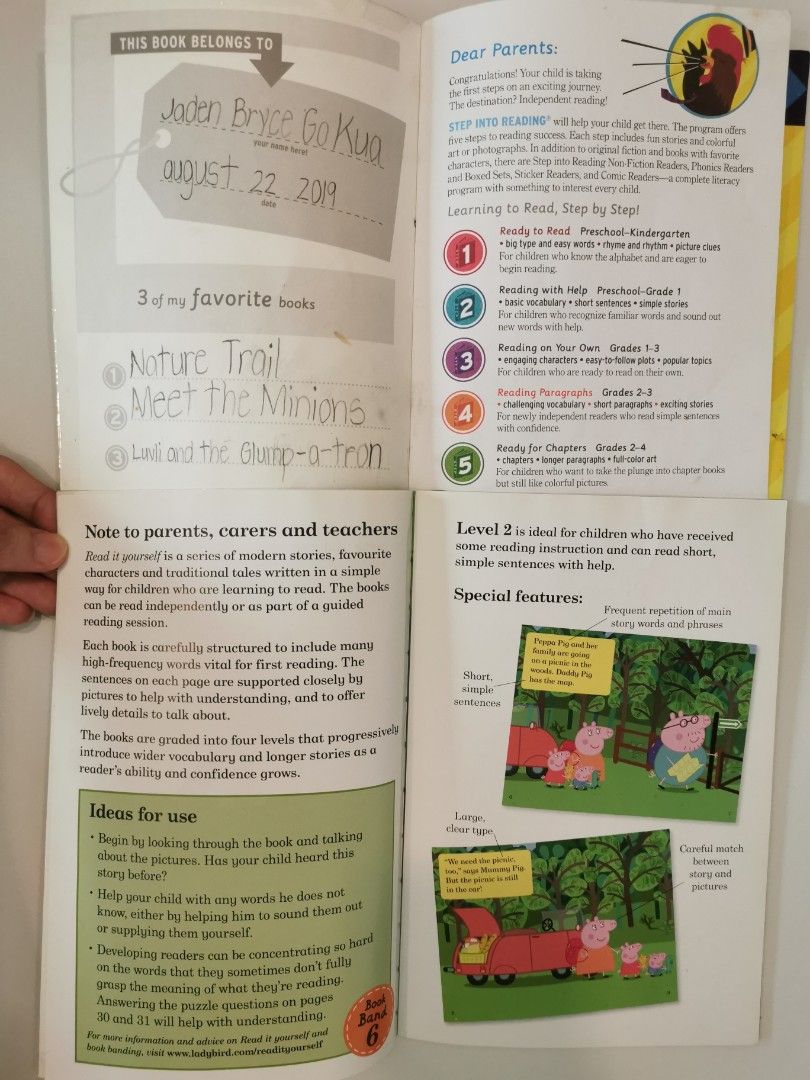 THIS BOOK BELONGS TO
Jaden Bryce Go Kua
your name here!
august 22 2019
date
3 of my favorite books
1 Nature Trail
2 Meet the Minions
3 Luvli and the Glump-a-tron
Dear Parents:
Congratulations! Your child is taking
the first steps on an exciting journey.
The destination? Independent reading!
STEP INTO READING® will help your child get there. The program offers
five steps to reading success. Each step includes fun stories and colorful
art or photographs. In addition to original fiction and books with favorite
characters, there are Step into Reading Non-Fiction Readers, Phonics Readers
and Boxed Sets, Sticker Readers, and Comic Readers—a complete literacy
program with something to interest every child.
Learning to Read, Step by Step!
1
Ready to Read Preschool–Kindergarten
• big type and easy words • rhyme and rhythm • picture clues
For children who know the alphabet and are eager to
begin reading.
2
Reading with Help Preschool–Grade 1
• basic vocabulary • short sentences • simple stories
For children who recognize familiar words and sound out
new words with help.
3
Reading on Your Own Grades 1–3
• engaging characters • easy-to-follow plots • popular topics
For children who are ready to read on their own.
4
Reading Paragraphs Grades 2–3
• challenging vocabulary • short paragraphs • exciting stories
For newly independent readers who read simple sentences
with confidence.
5
Ready for Chapters Grades 2–4
• chapters • longer paragraphs • full-color art
For children who want to take the plunge into chapter books
but still like colorful pictures.
Note to parents, carers and teachers
Read it yourself is a series of modern stories, favourite
characters and traditional tales written in a simple
way for children who are learning to read. The books
can be read independently or as part of a guided
reading session.
Each book is carefully structured to include many
high-frequency words vital for first reading. The
sentences on each page are supported closely by
pictures to help with understanding, and to offer
lively details to talk about.
The books are graded into four levels that progressively
introduce wider vocabulary and longer stories as a
reader's ability and confidence grows.
Ideas for use
• Begin by looking through the book and talking
about the pictures. Has your child heard this
story before?
• Help your child with any words he does not
know, either by helping him to sound them out
or supplying them yourself.
• Developing readers can be concentrating so hard
on the words that they sometimes don't fully
grasp the meaning of what they're reading.
Answering the puzzle questions on pages
30 and 31 will help with understanding.
For more information and advice on Read it yourself and
book banding, visit www.ladybird.com/readityourself
Book
Band
6
Level 2 is ideal for children who have received
some reading instruction and can read short,
simple sentences with help.
Special features:
Frequent repetition of main
story words and phrases
Peppa Pig and her
family are going
on a picnic in the
woods. Daddy Pig
has the map.
Short,
simple
sentences
Large,
clear type
"We need the picnic,
too," says Mummy Pig.
But the picnic is still
in the car!
Careful match
between
story and
pictures